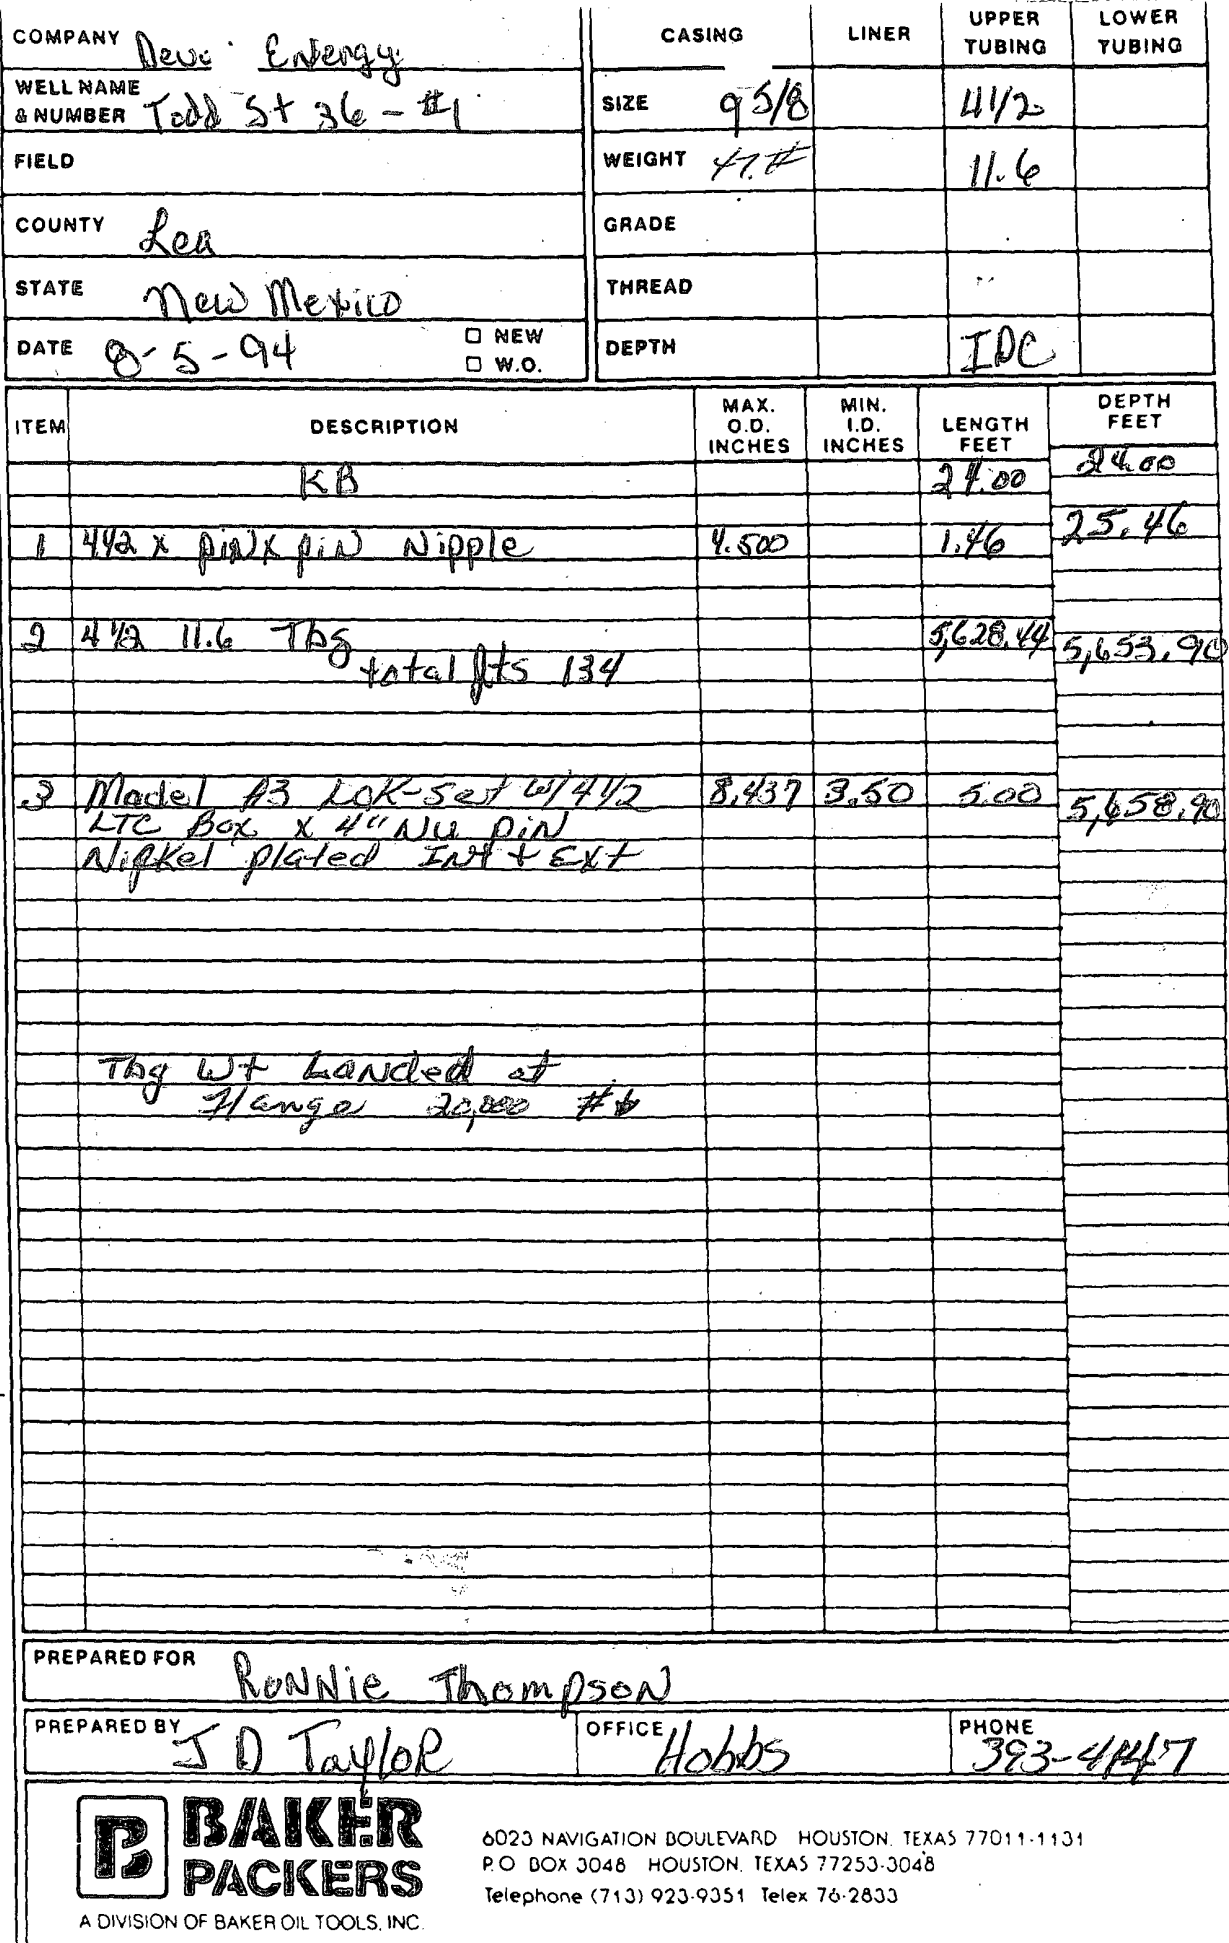 COMPANY Devi Energy
WELL NAME & NUMBER Todd St 36 - #1
FIELD
COUNTY Lea
STATE New Mexico
DATE 8-5-94 □ NEW
□ W.O.
CASING LINER UPPER TUBING LOWER TUBING
SIZE 9 5/8 4 1/2
WEIGHT 47.# 11.6
GRADE
THREAD
DEPTH IPC
ITEM DESCRIPTION MAX. O.D. INCHES MIN. I.D. INCHES LENGTH FEET DEPTH FEET
KB 24.00 24.00
1 4 1/2 x pin x pin Nipple 4.500 1.46 25.46
2 4 1/2 11.6 Tbg 5,628.44 5,653.90
total jts 134
3 Model A3 Lok-Set W/ 4 1/2 8.437 3.50 5.00 5,658.90
LTC Box x 4" NU PiN
Nipkel plated Int + Ext
Tbg Wt Landed at
Flange 20,000 #
PREPARED FOR RONNie Thompson
PREPARED BY J D Taylor OFFICE Hobbs PHONE 393-4147
B BAKER
PACKERS
A DIVISION OF BAKER OIL TOOLS, INC.
6023 NAVIGATION BOULEVARD HOUSTON, TEXAS 77011-1131
P.O BOX 3048 HOUSTON, TEXAS 77253-3048
Telephone (713) 923-9351 Telex 76-2833